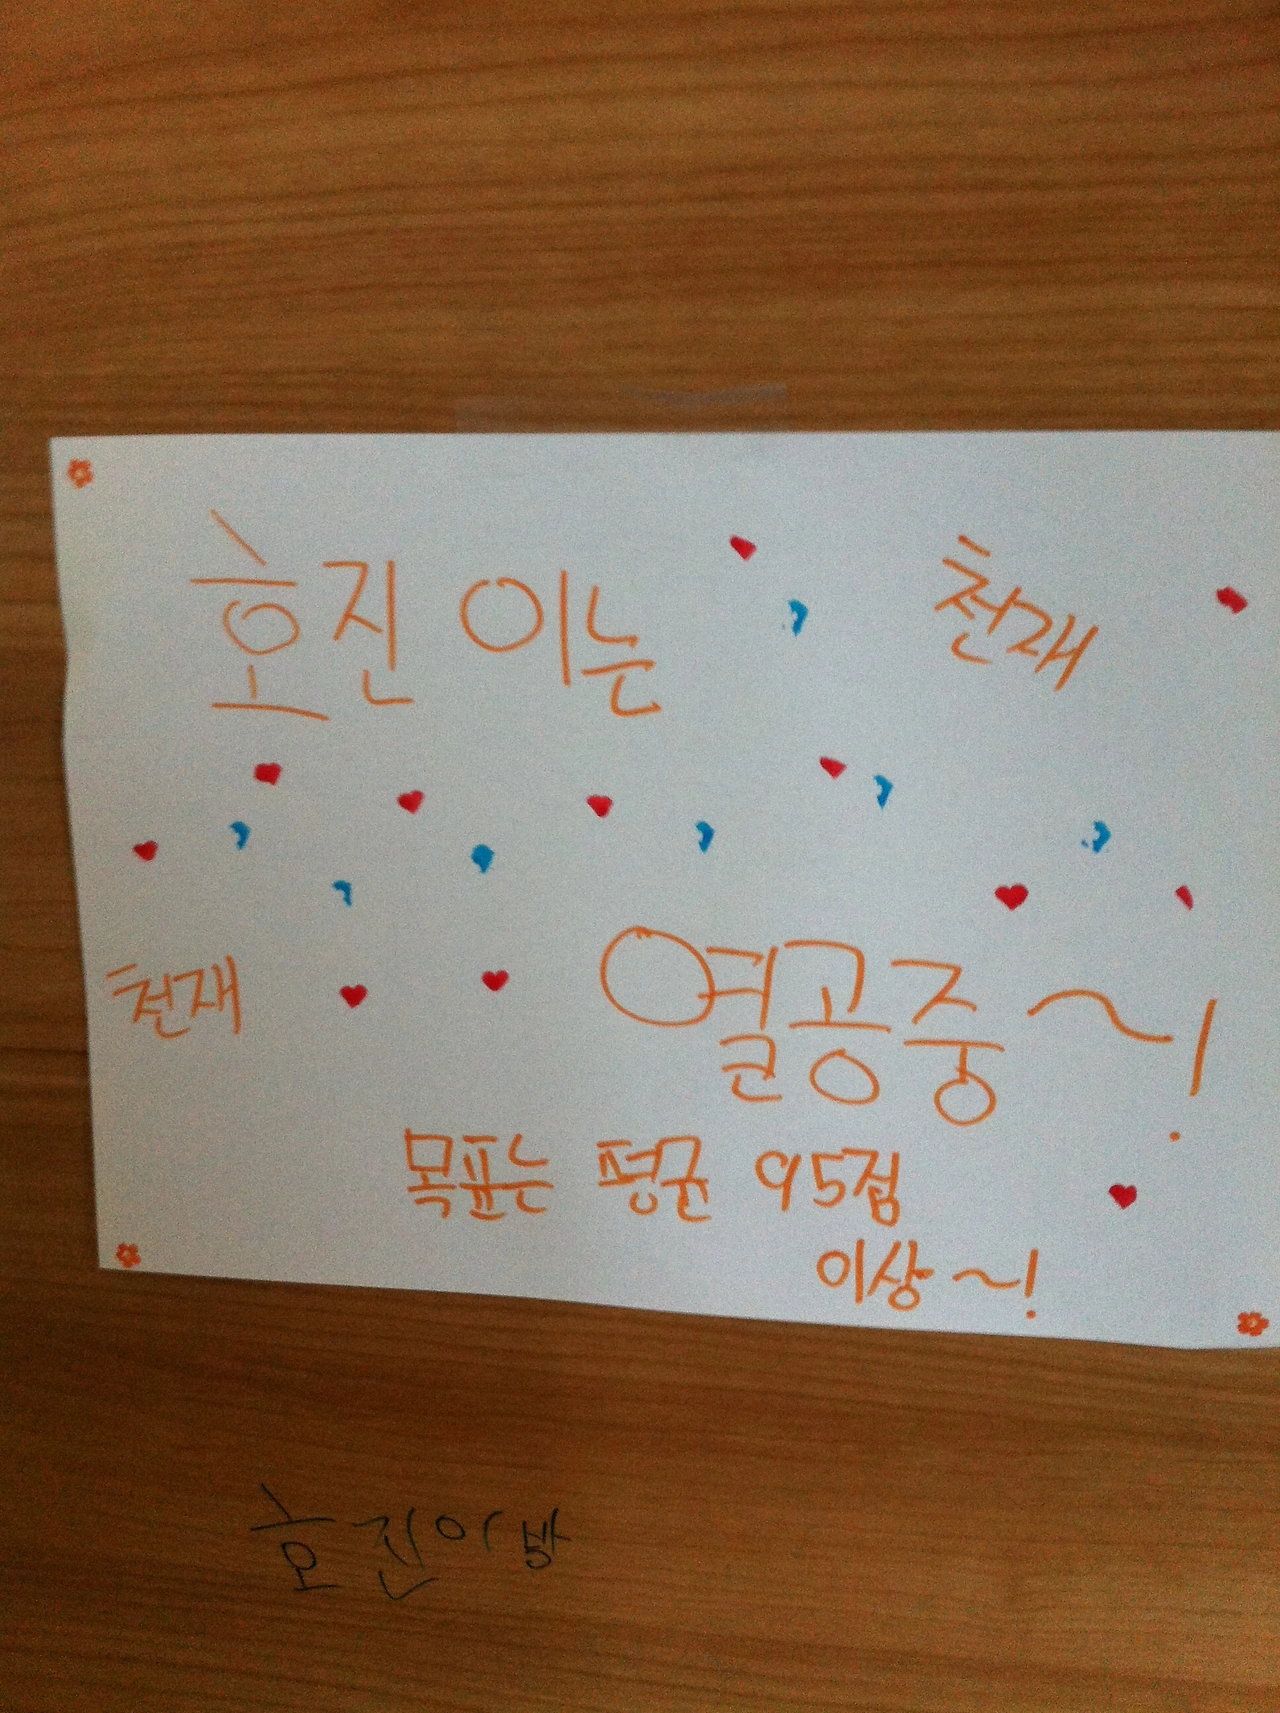 호진이는
천재
천재
열공중~!
목표는 평균 95점
이상~!
호진이방